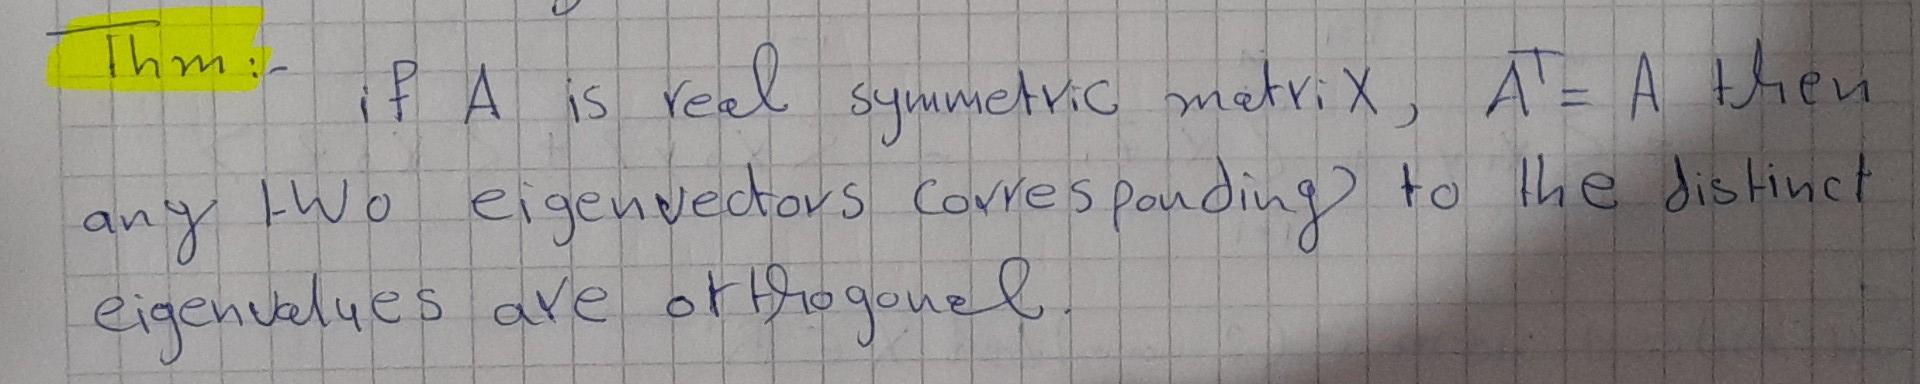 Thm:-
if A is real symmetric matrix, Aᵀ = A then
any two eigenvectors corresponding to the distinct
eigenvalues are orthogonal.